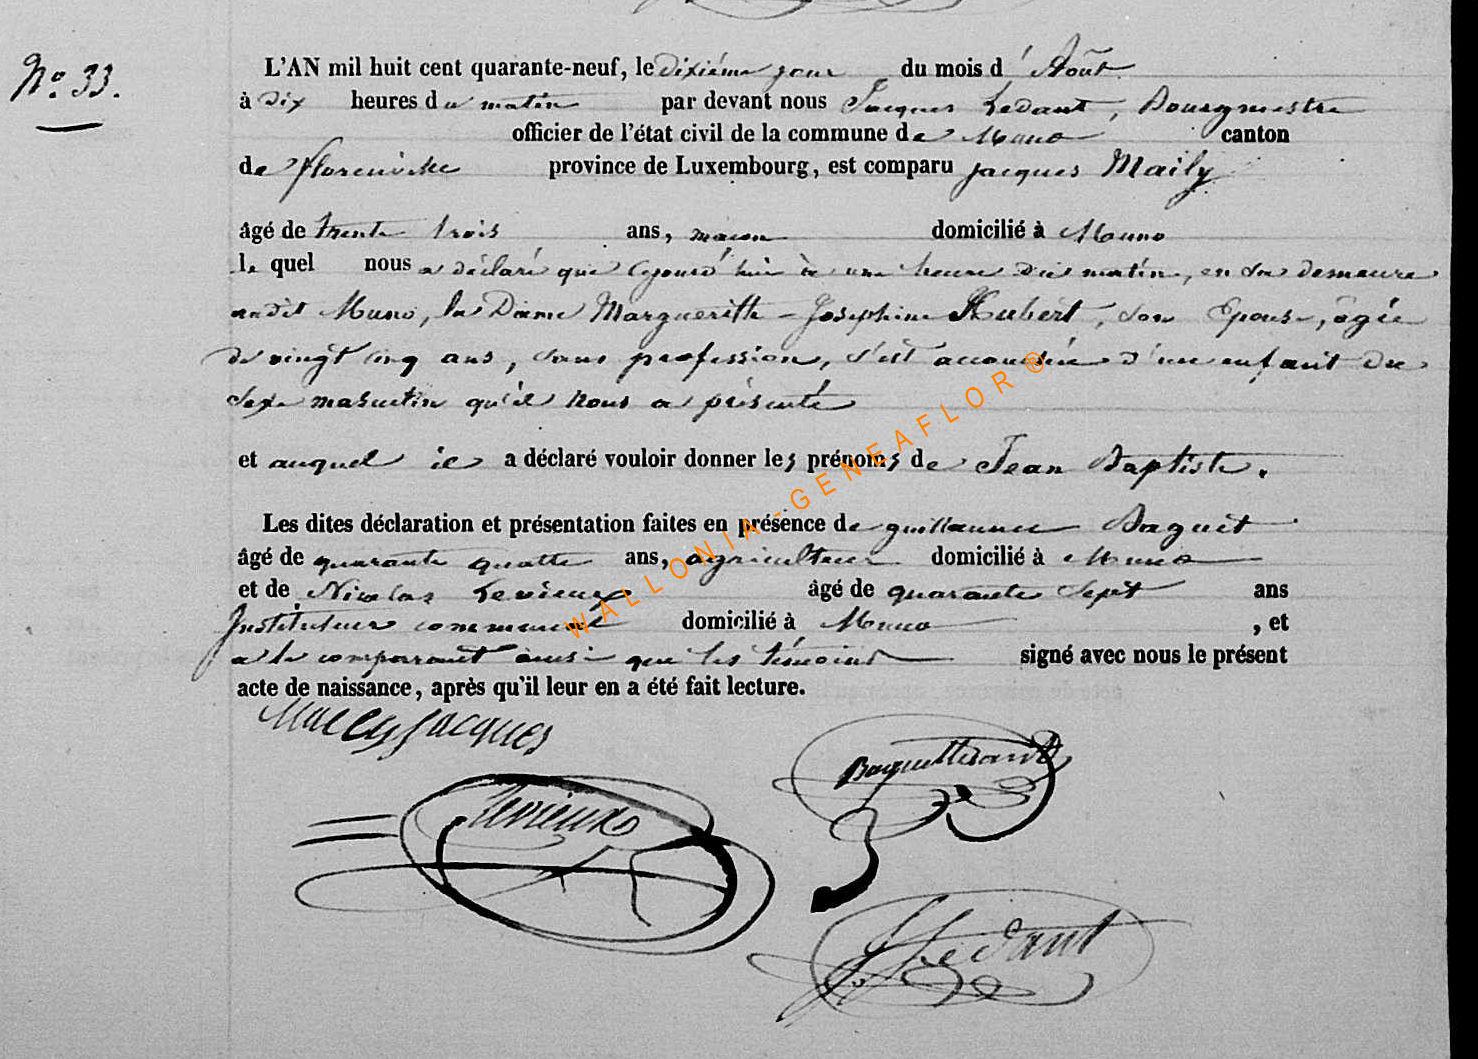 No. 33.
L'AN mil huit cent quarante-neuf, le dixième jour du mois d'Août
à dix heures du matin par devant nous Jacques Ledant, Bourgmestre
officier de l'état civil de la commune de Muno canton
de florenville province de Luxembourg, est comparu jacques Maily
âgé de trente trois ans, maçon domicilié à Muno
le quel nous a déclaré que cejourd'hui à une heure du matin, en sa demeure
audit Muno, la Dame Margueritte - Josephine Hubert, son Epouse, âgée
de vingt cinq ans, sans profession, s'est accouchée d'un enfant du
sexe masculin qu'il nous a présenté
et auquel il a déclaré vouloir donner les prénoms de Jean Baptiste.
Les dites déclaration et présentation faites en présence de guillaume Baguet
âgé de quarante quatre ans, agriculteur domicilié à Muno
et de Nicolas Levieux âgé de quarante sept ans
Instituteur communal domicilié à Muno , et
a le comparant ainsi que les témoins signé avec nous le présent
acte de naissance, après qu'il leur en a été fait lecture.
Mailly jacques
Levieux
J Ledant
WALLONIA-GENEAFLOR ®